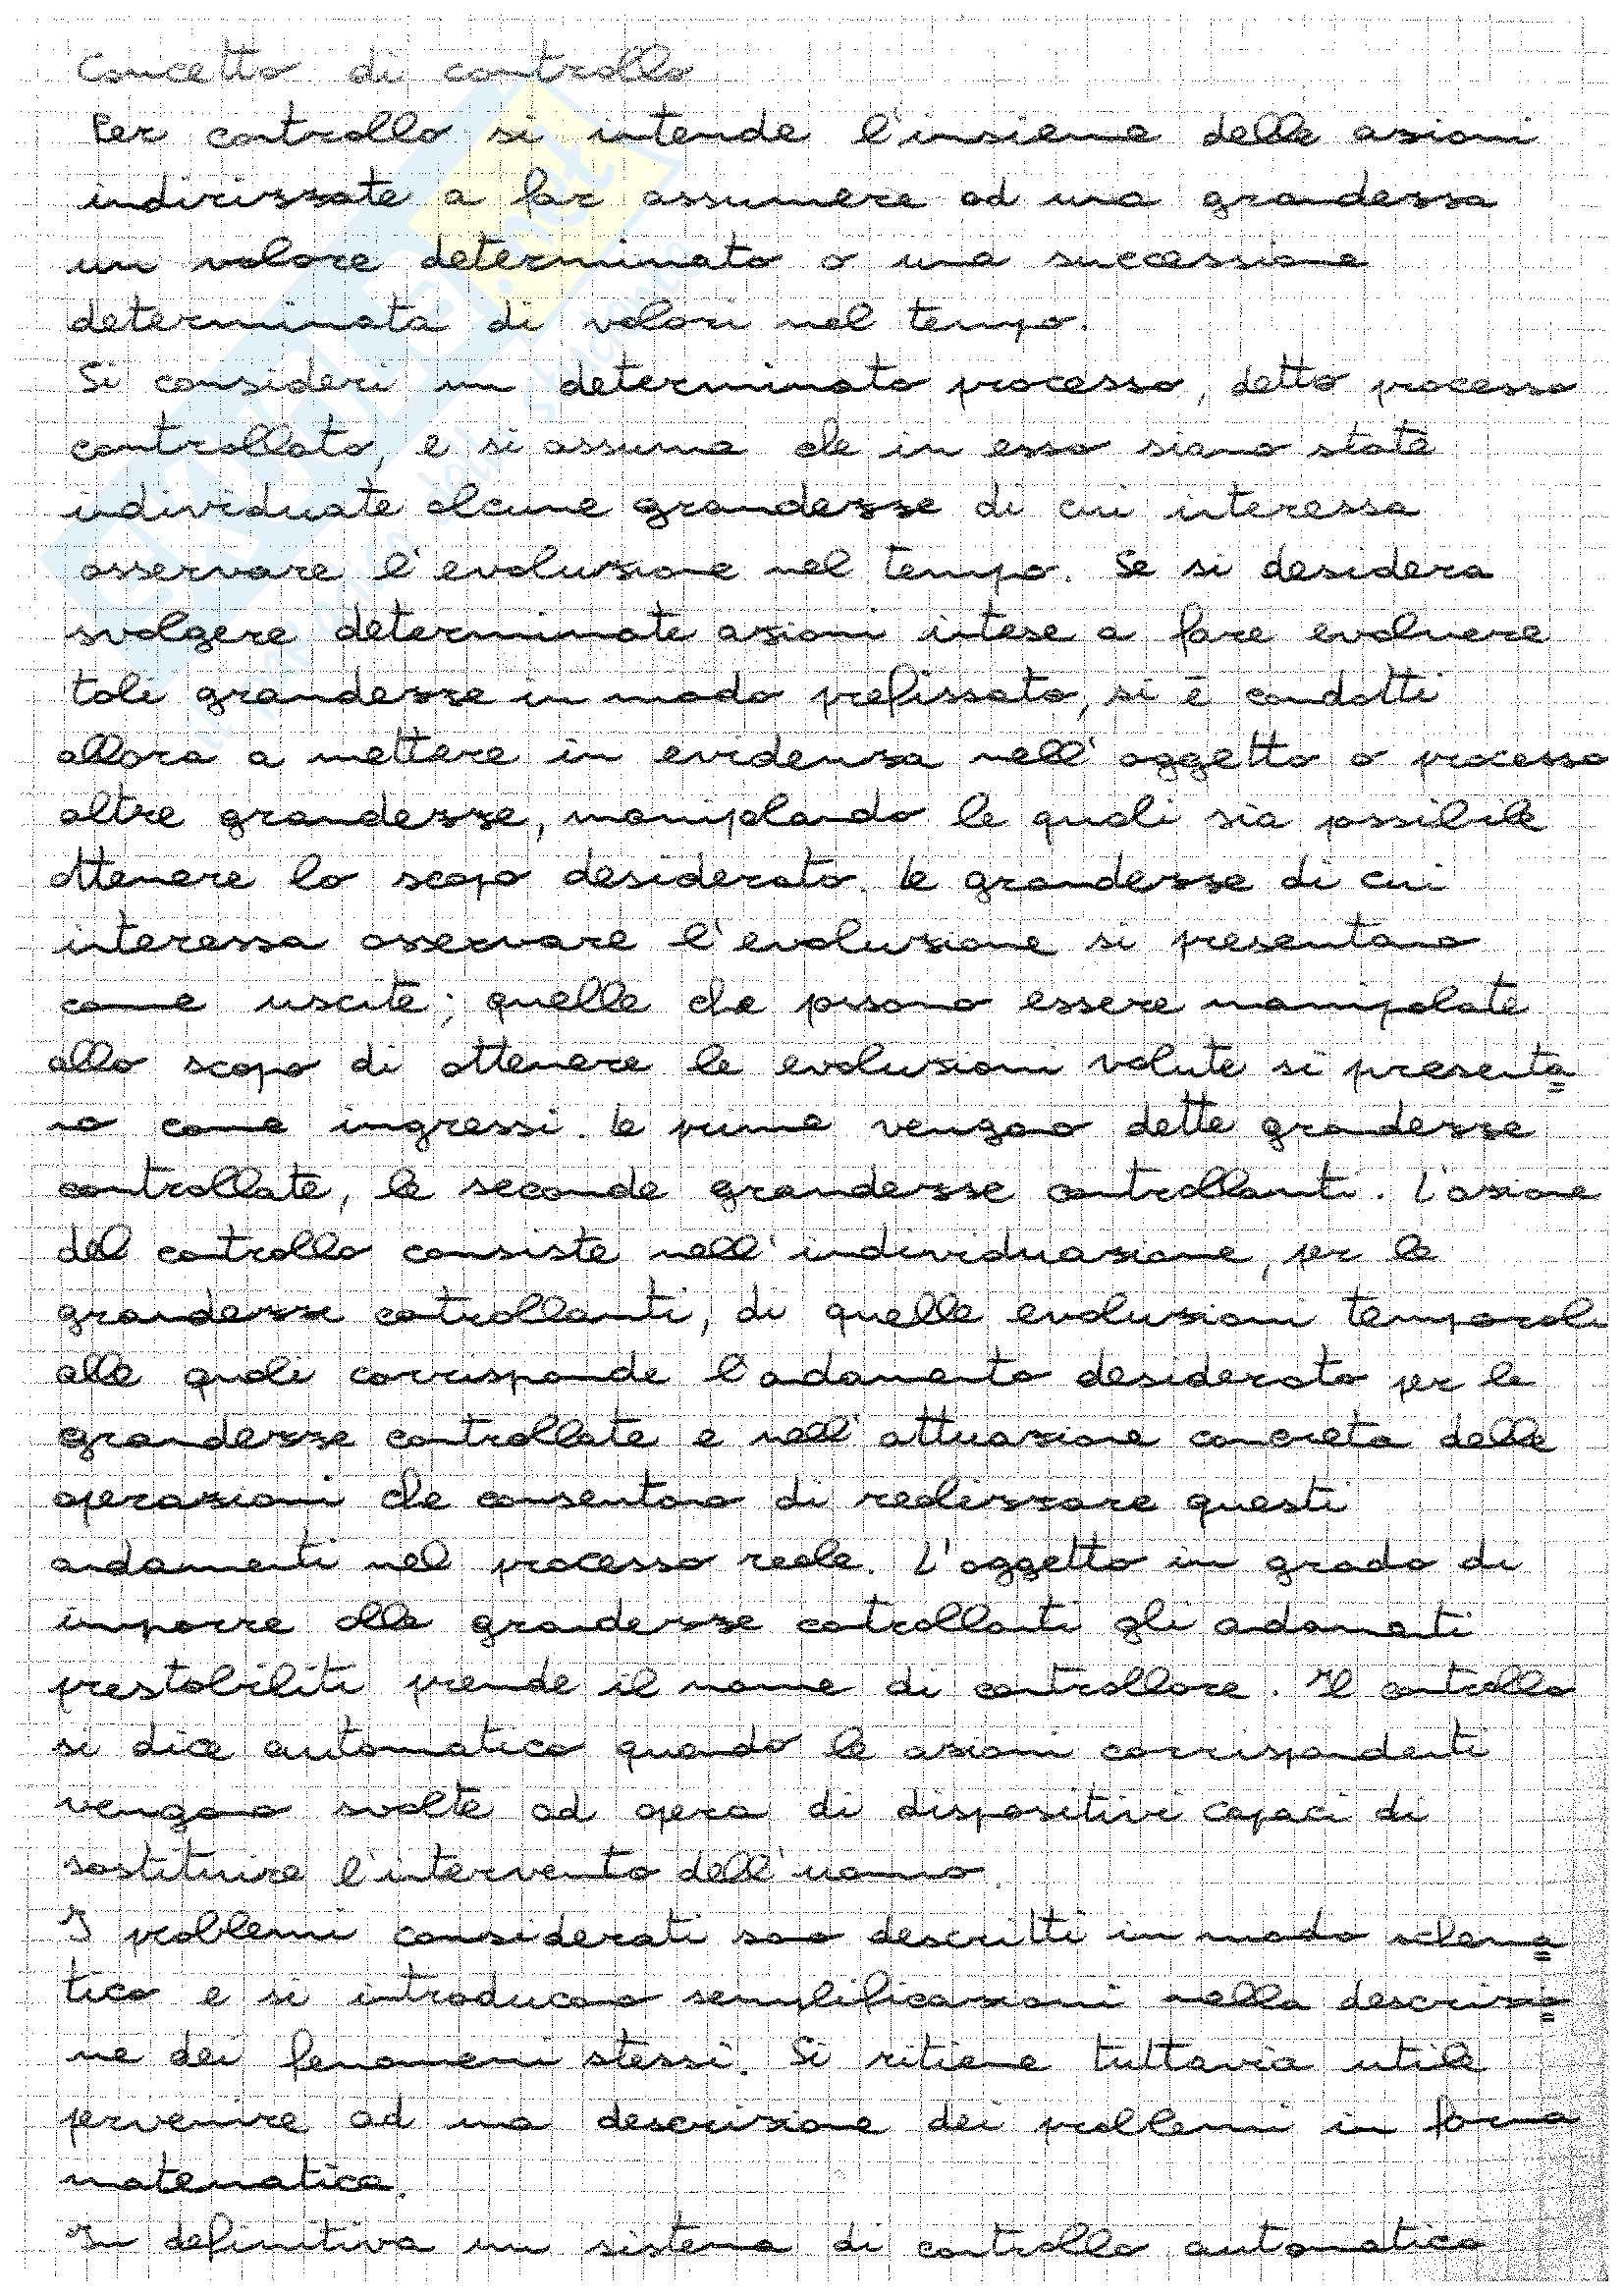 Concetto di controllo
Per controllo si intende l'insieme delle azioni
indirizzate a far assumere ad una grandezza
un valore determinato o una successione
determinata di valori nel tempo.
Si consideri un determinato processo, detto processo
controllato, e si assuma che in esso siano state
individuate alcune grandezze di cui interessa
osservare l'evoluzione nel tempo. Se si desidera
svolgere determinate azioni intese a fare evolvere
tali grandezze in modo prefissato, si è condotti
allora a mettere in evidenza nell'oggetto o processo
altre grandezze, manipolando le quali sia possibile
ottenere lo scopo desiderato. Le grandezze di cui
interessa osservare l'evoluzione si presentano
come uscite; quelle che possono essere manipolate
allo scopo di ottenere le evoluzioni volute si presenta=
no come ingressi. Le prime vengono dette grandezze
controllate, le seconde grandezze controllanti. L'azione
del controllo consiste nell'individuazione, per le
grandezze controllanti, di quelle evoluzioni temporali
alle quali corrisponde l'andamento desiderato per le
grandezze controllate e nell'attuazione concreta delle
operazioni che consentono di realizzare questi
andamenti nel processo reale. L'oggetto in grado di
imporre alle grandezze controllanti gli andamenti
prestabiliti prende il nome di controllore. Il controllo
si dice automatico quando le azioni corrispondenti
vengono svolte ad opera di dispositivi capaci di
sostituire l'intervento dell'uomo.
I problemi considerati sono descritti in modo schema=
tico e si introducono semplificazioni nella descrizio=
ne dei fenomeni stessi. Si ritiene tuttavia utile
pervenire ad una descrizione dei problemi in forma
matematica.
In definitiva un sistema di controllo automatico